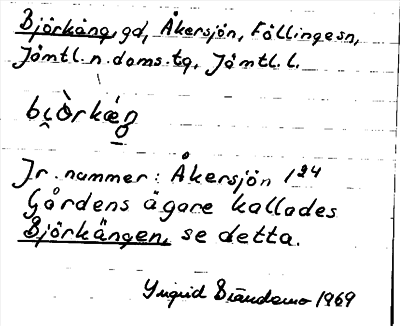 Björkäng, gd, Åkersjön, Föllingesn,
Jämtl. n. doms. tg, Jämtl. l.
bi̯òrkæŋ
Jr. nummer: Åkersjön 1²⁴
Gårdens ägare kallades
Björkängen, se detta.
Yngrid 1969